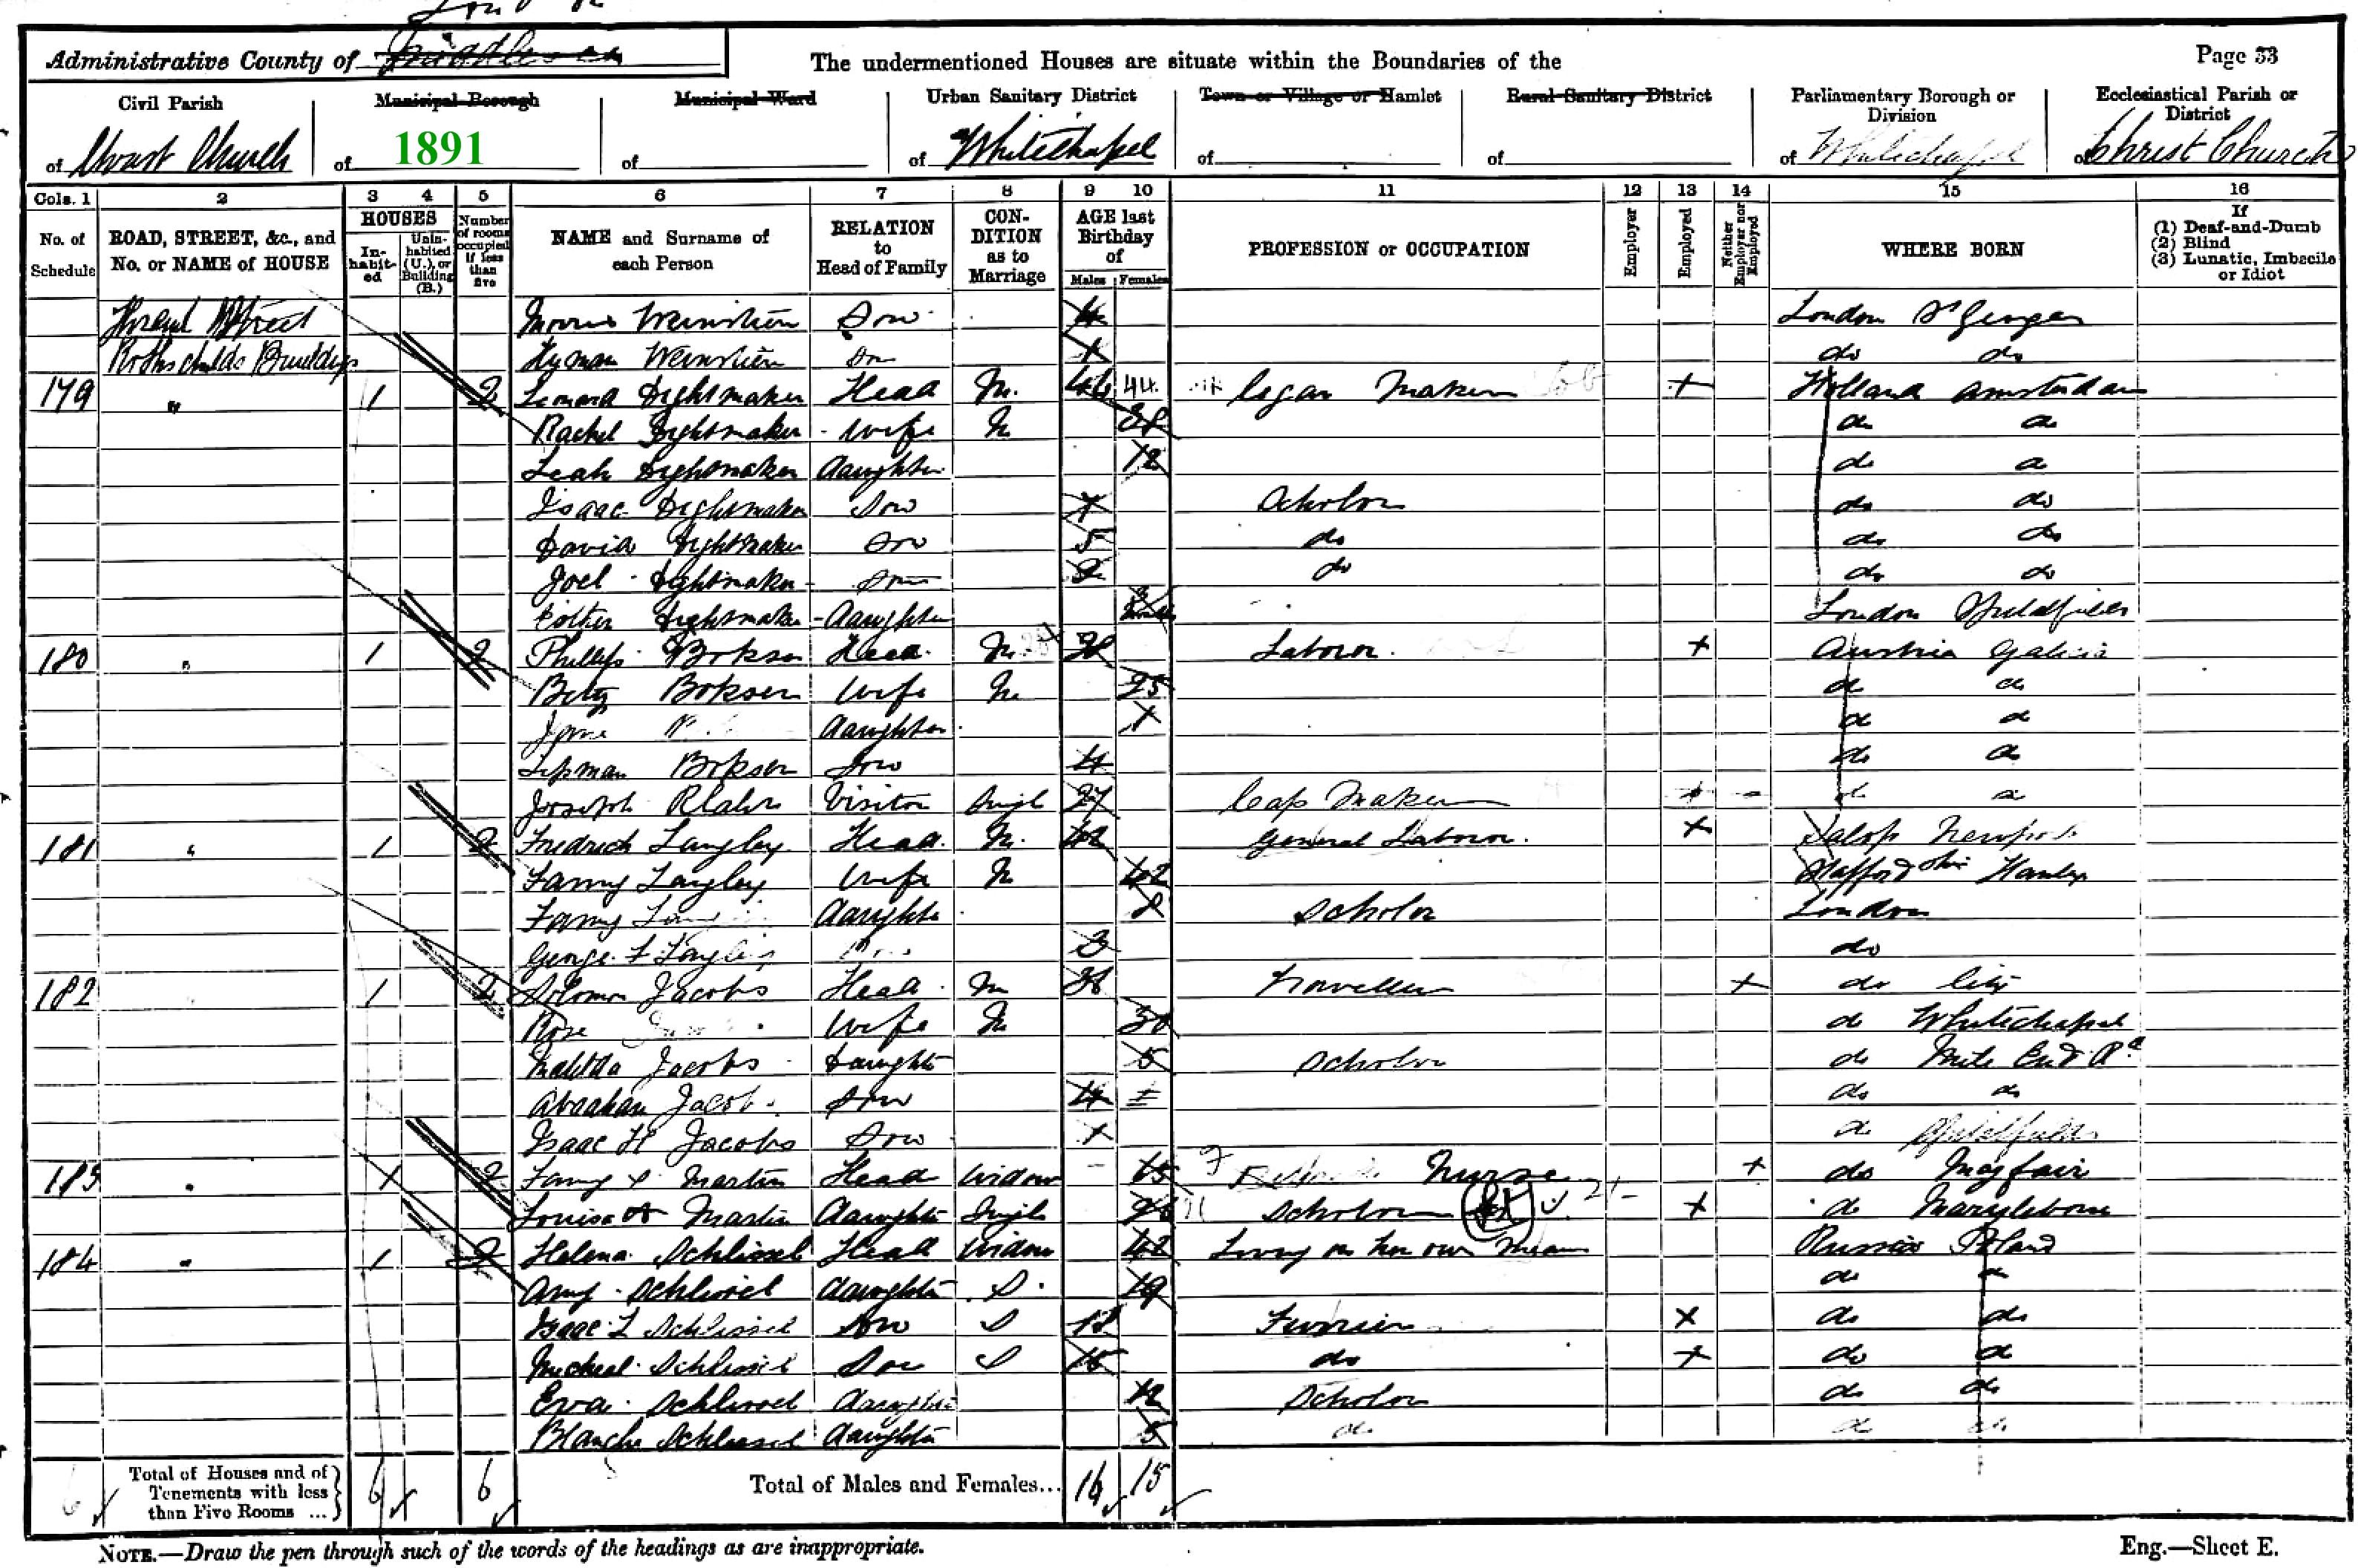 Lond
Administrative County of Middlesex
The undermentioned Houses are situate within the Boundaries of the
Page 33
Civil Parish
of Christ Church
Municipal Borough
of 1891
Municipal Ward
of
Urban Sanitary District
of Whitechapel
Town or Village or Hamlet
of
Rural Sanitary District
of
Parliamentary Borough or Division
of Whitechapel
Ecclesiastical Parish or District
of Christ Church
Cols. 1 2 3 4 5 6 7 8 9 10 11 12 13 14 15 16
No. of Schedule
ROAD, STREET, &c., and No. or NAME of HOUSE
HOUSES
In-habit-ed
Unin-habited (U.), or Building (B.)
Number of rooms occupied if less than five
NAME and Surname of each Person
RELATION to Head of Family
CON-DITION as to Marriage
AGE last Birthday of
Males Females
PROFESSION or OCCUPATION
Employer
Employed
Neither Employer nor Employed
WHERE BORN
If
(1) Deaf-and-Dumb
(2) Blind
(3) Lunatic, Imbecile or Idiot
Street Morris Weinstien Son 4 London St Georges
Rothschilds Buildings Hyman Weinstien Son 1 do do
179 " 1 2 Dightmaker Head M. 44 Segar Maker + Holland Amsterdam
Rachel Dightmaker Wife M 38 do do
Leah Dightmaker Daughter 12 do do
Isaac Dightmaker Son 7 Scholar do do
David Dightmaker Son 5 do do do
Joel Dightmaker Son 2 do do do
Esther Dightmaker Daughter 3 London Spitalfields
180 " 1 2 Phillip Bokser Head M. 28 Labour + Austria Galicia
Betsy Bokser Wife M 25 do do
Daughter do do
Lipman Bokser Son 4 do do
Joseph Visitor Singl 27 Cap Maker + do do
181 " 1 2 Fredrich Langley Head M. 42 General Labour. + Salop Newport
Fanny Langley Wife M 42 Staffordshire Hanley
Fanny Daughter 8 Scholar London
George F Langley Son 3 do
182 1 2 Solomon Jacobs Head M 38 Traveller + do City
Rose Wife M 30 do Whitechapel
Matilda Jacobs Daughter 5 Scholar do Mile End Rd
Abraham Jacobs Son 4 do do
Isaac H Jacobs Son 1 do Spitalfields
183 " 1 2 Fanny Martin Head Widow 65 Nurse + do Mayfair
Louisa Martin Daughter Singl Scholar + do Marylebone
184 " 1 2 Helena Schlissel Head Widow 42 Living on her own Means Russia Poland
Amy Schlissel Daughter S. 19 do do
Isaac L Schlissel Son S Furrier X do do
Micheal Schlissel Son S 15 do + do do
Eva Schlissel Daughter 12 Scholar do do
Blanche Schlissel Daughter 5 do do do
Total of Houses and of Tenements with less than Five Rooms ... 6 6
Total of Males and Females... 16 15
NOTE.—Draw the pen through such of the words of the headings as are inappropriate.
Eng.—Sheet E.